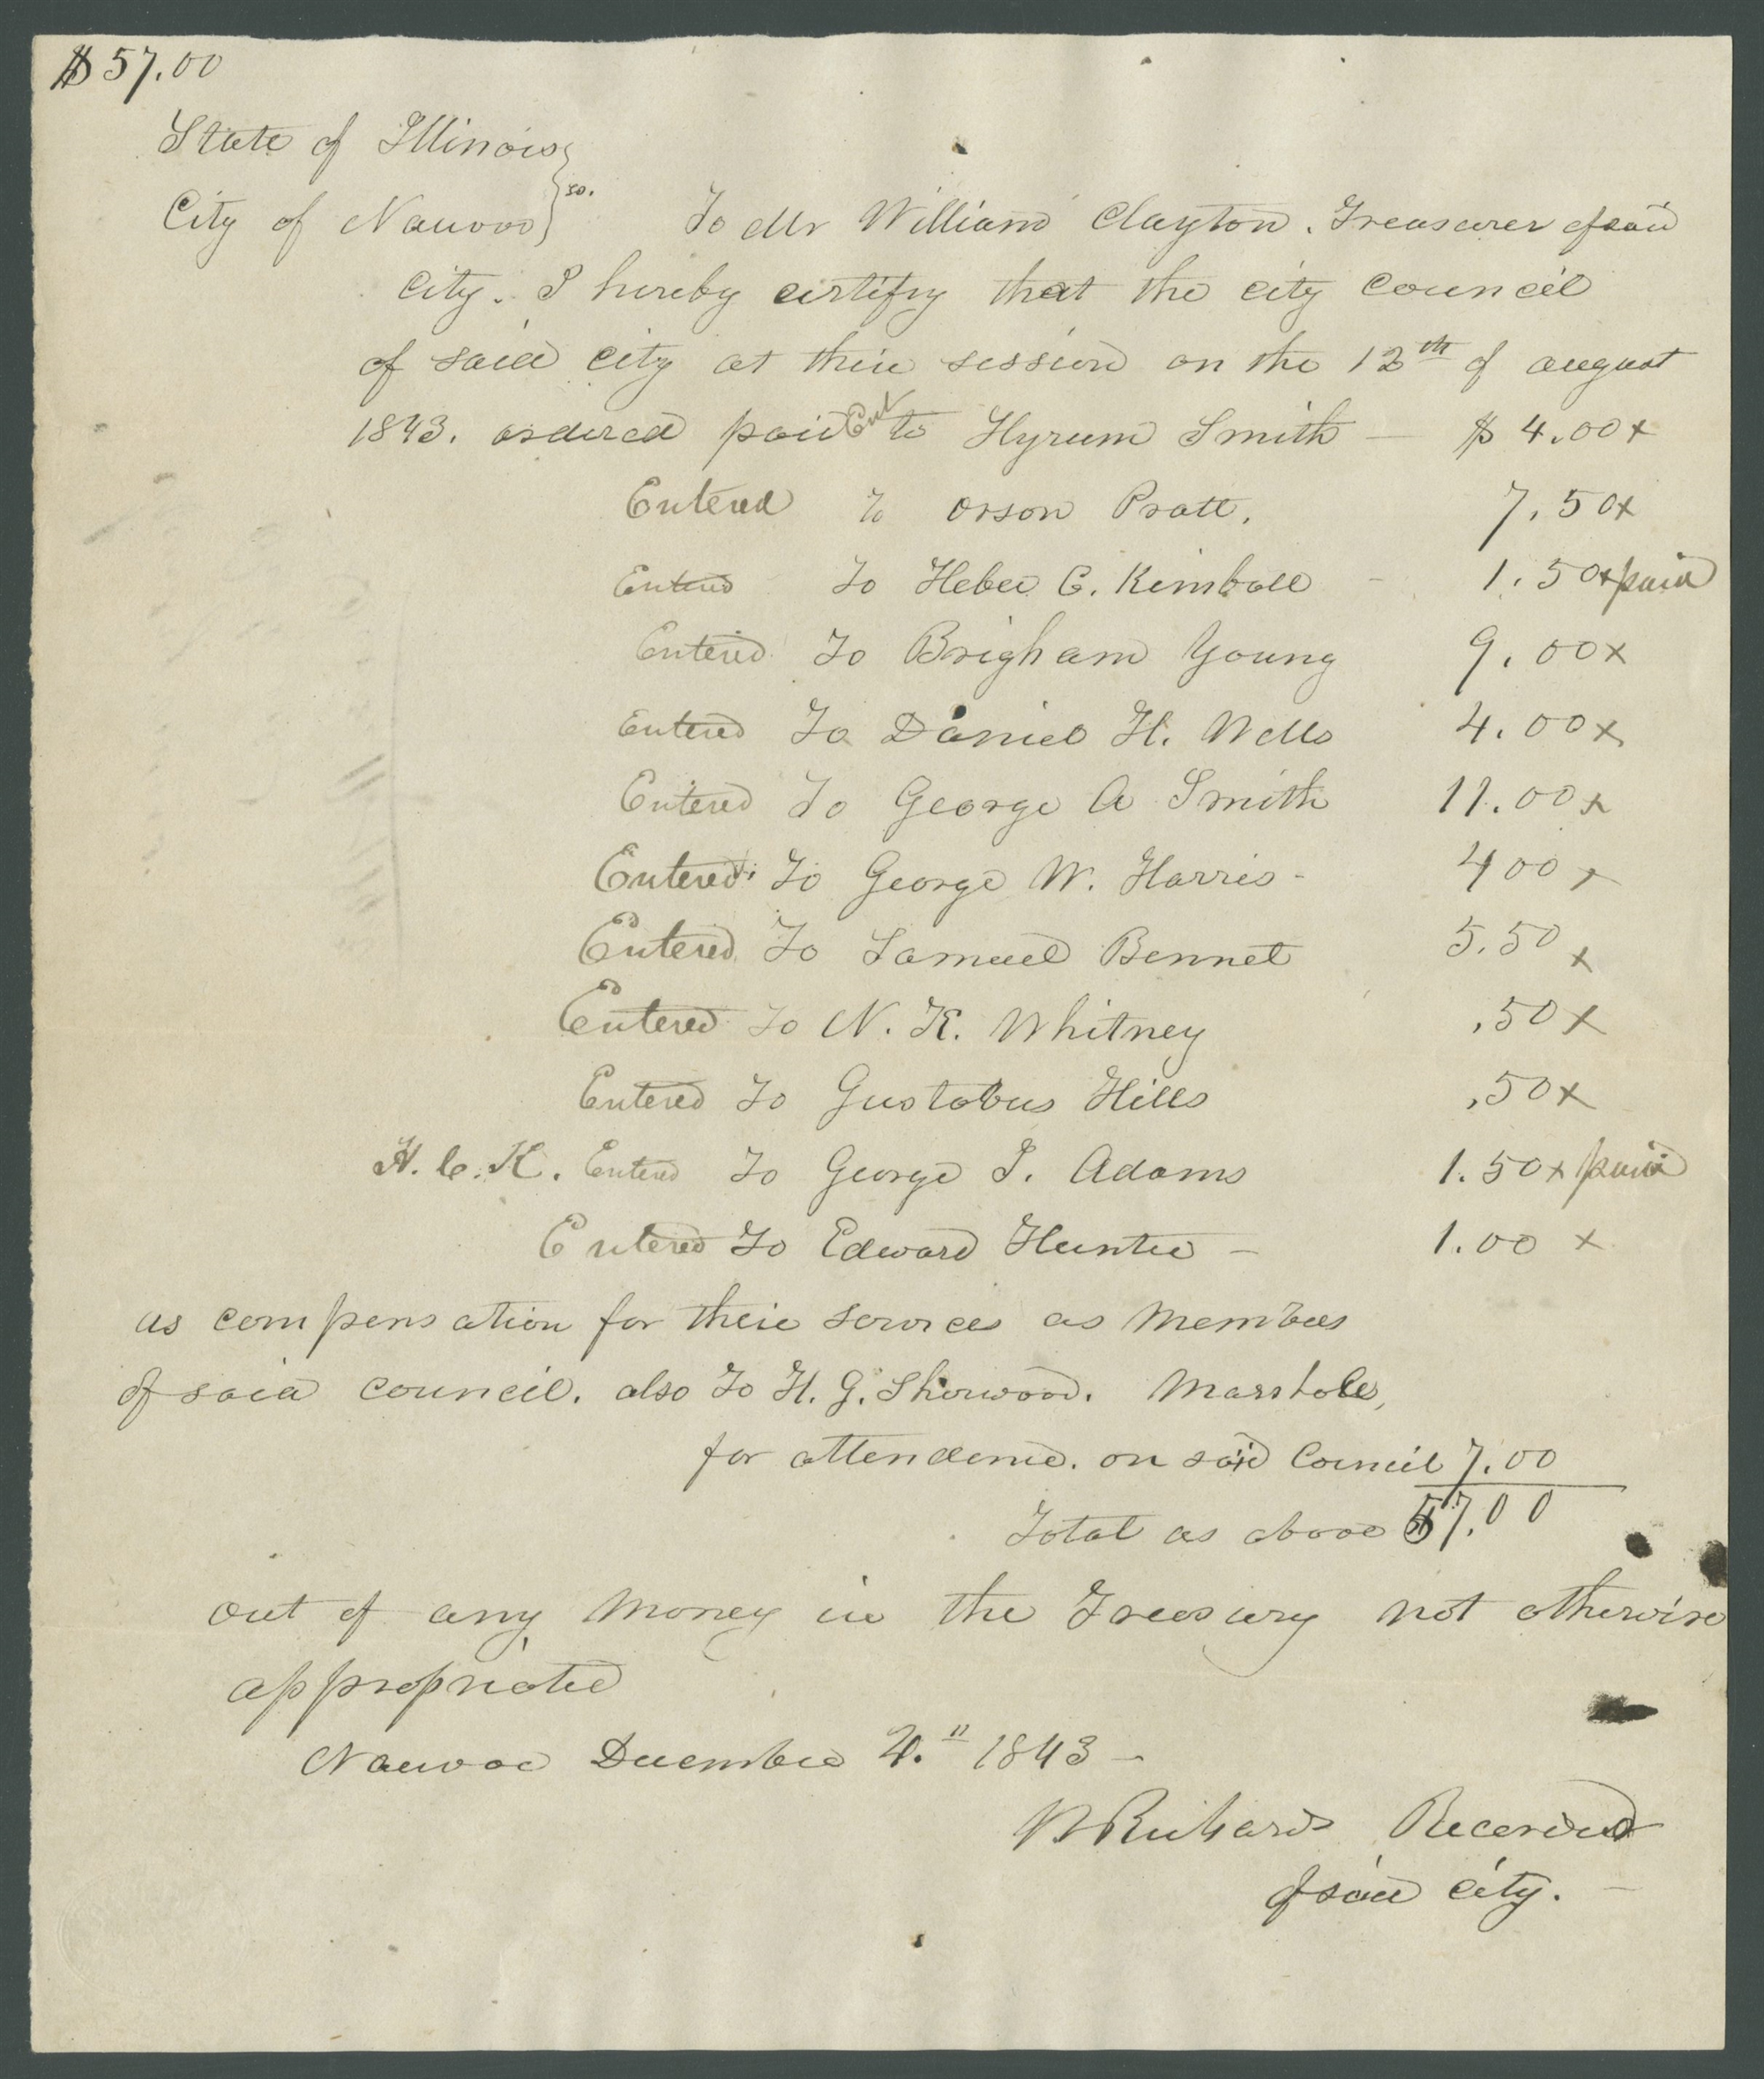 $57.00
State of Illinois }
City of Nauvoo } ss. To Mr William Clayton. Treasurer of said
City. I hereby certify that the city council
of said city at their session on the 12th of august
1843. ordered paid Ent to Hyrum Smith — $ 4.00 x
Entered to Orson Pratt. 7.50 x
Entered To Heber C. Kimball - 1.50 x paid
Entered To Brigham Young 9.00 x
Entered To Daniel H. Wells 4.00 x
Entered To George A Smith 11.00 x
Entered. To George W. Harris - 4 00 x
Entered To Samuel Bennet 5.50 x
Entered To N. K. Whitney .50 x
Entered To Gustavus Hills .50 x
H. C. K. Entered To George J. Adams 1.50 x paid
Entered To Edward Hunter — 1.00 x
as compensation for their services as Members
of said council. also To H. G. Sherwood. Marshall,
for attendence. on said Council 7.00
Total as above 57.00
out of any Money in the Treasury not otherwise
appropriated
Nauvoo December 1843 —
W Richards Recorder
of said city. —